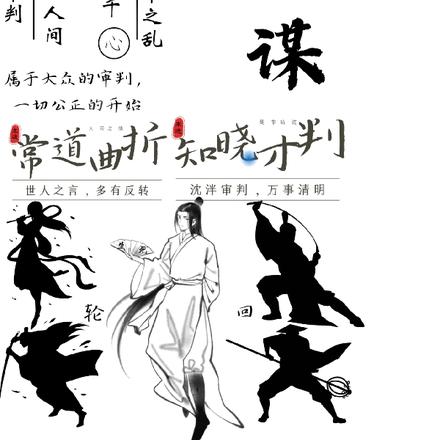 判
人间
心
之乱
谋
属于大众的审判，
一切公正的开始
常道曲折
知晓才判
世人之言，多有反转
沈泮审判，万事清明
轮
回